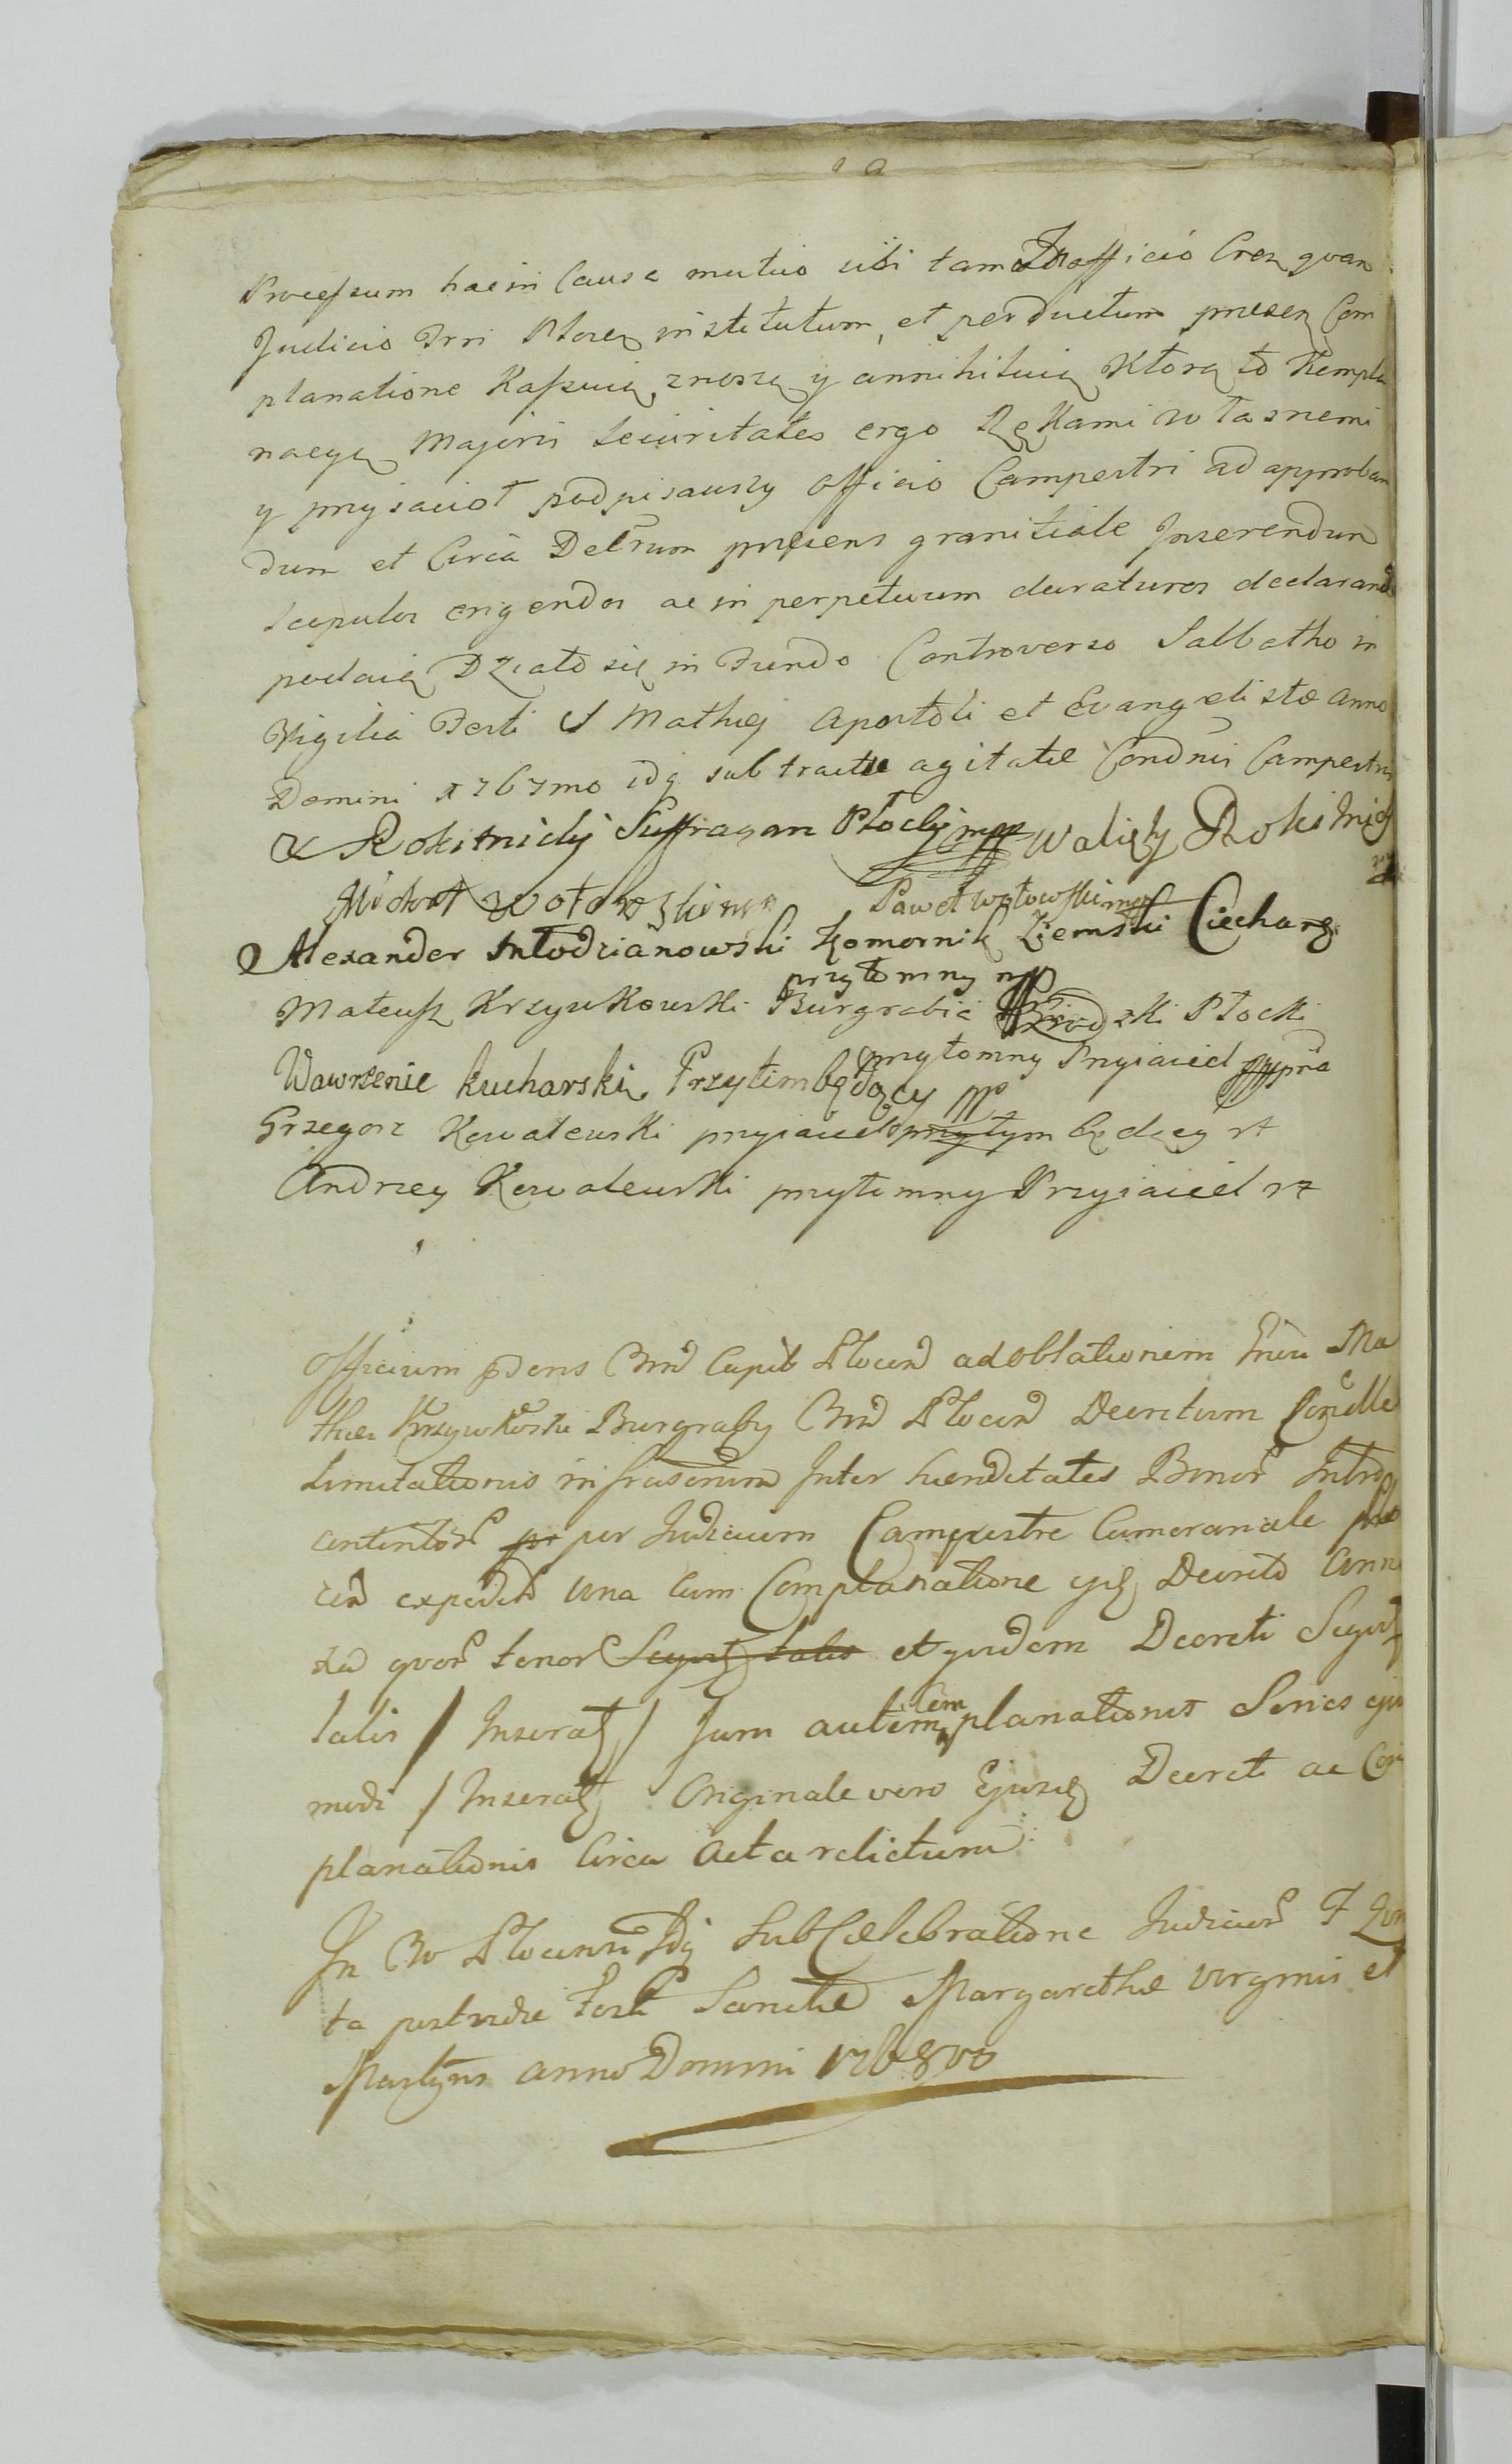 Processum hac in Causa mutuo sibi tam in officio Cren quam
Judicio Trri Plocen institutum, et perductum presen Com
planatione Kassuią, znoszą y annihiluią Ktorą to Kompla
nacyą Majoris Securitates ergo Rękami własnemi
y przyiaciół podpisawszy officio Campestri ad approban
dum et Circa Detrum presens granitiale Inserendum
Scopulos erigendos ac in perpetuum duraturos declarand
podaią Działo się in Fundo Controverso Sabbatho in
Vigilia Festi S Mathej Apostoli et Evangelistæ Anno
Domini 1767mo idq sub tractu agitatæ Condnis Campestris
Rokitnicki Suffragan Płocki mp Walięty Rokitnicki
Michał Wołowski mp Paweł Wołowski mp
Alexander Młodzianowski Komornik Ziemski Ciechang.
przytomny mp
Mateusz Krzywkowski Burgrabia Grodzki Płocki
przytomny Przyiaciel mppria
Wawrzeniec Kucharski Przytim będący mp
Grzegorz Kowalewski przyiaciel przytym będący
Andrzey Kowalewski przytomny Przyiaciel
Officium pdens Capit Plocen ad oblationem Ma
thei Krzywkoski Burgraby Plocen Decretum
Limitationis infrascrum Inter hæreditates Bonor Intro
contentor per Judicium Campestre Cameranale
expedit una cum Complanatione ejusd Decreto Anne
xa quor tenor Sequit talis et quidem Decreti Sequit
talis / Inserat / Jam autem Complanationis Series ejus
modi / Inserat Originale vero Ejusd Decreti ac Com
planationis Circa Acta relictum
In Plocensi Sub Cælebratione Judicior
ta postridie Festi Sanctæ Margarethæ Virginis et
Martyris anno Domini 1768vo